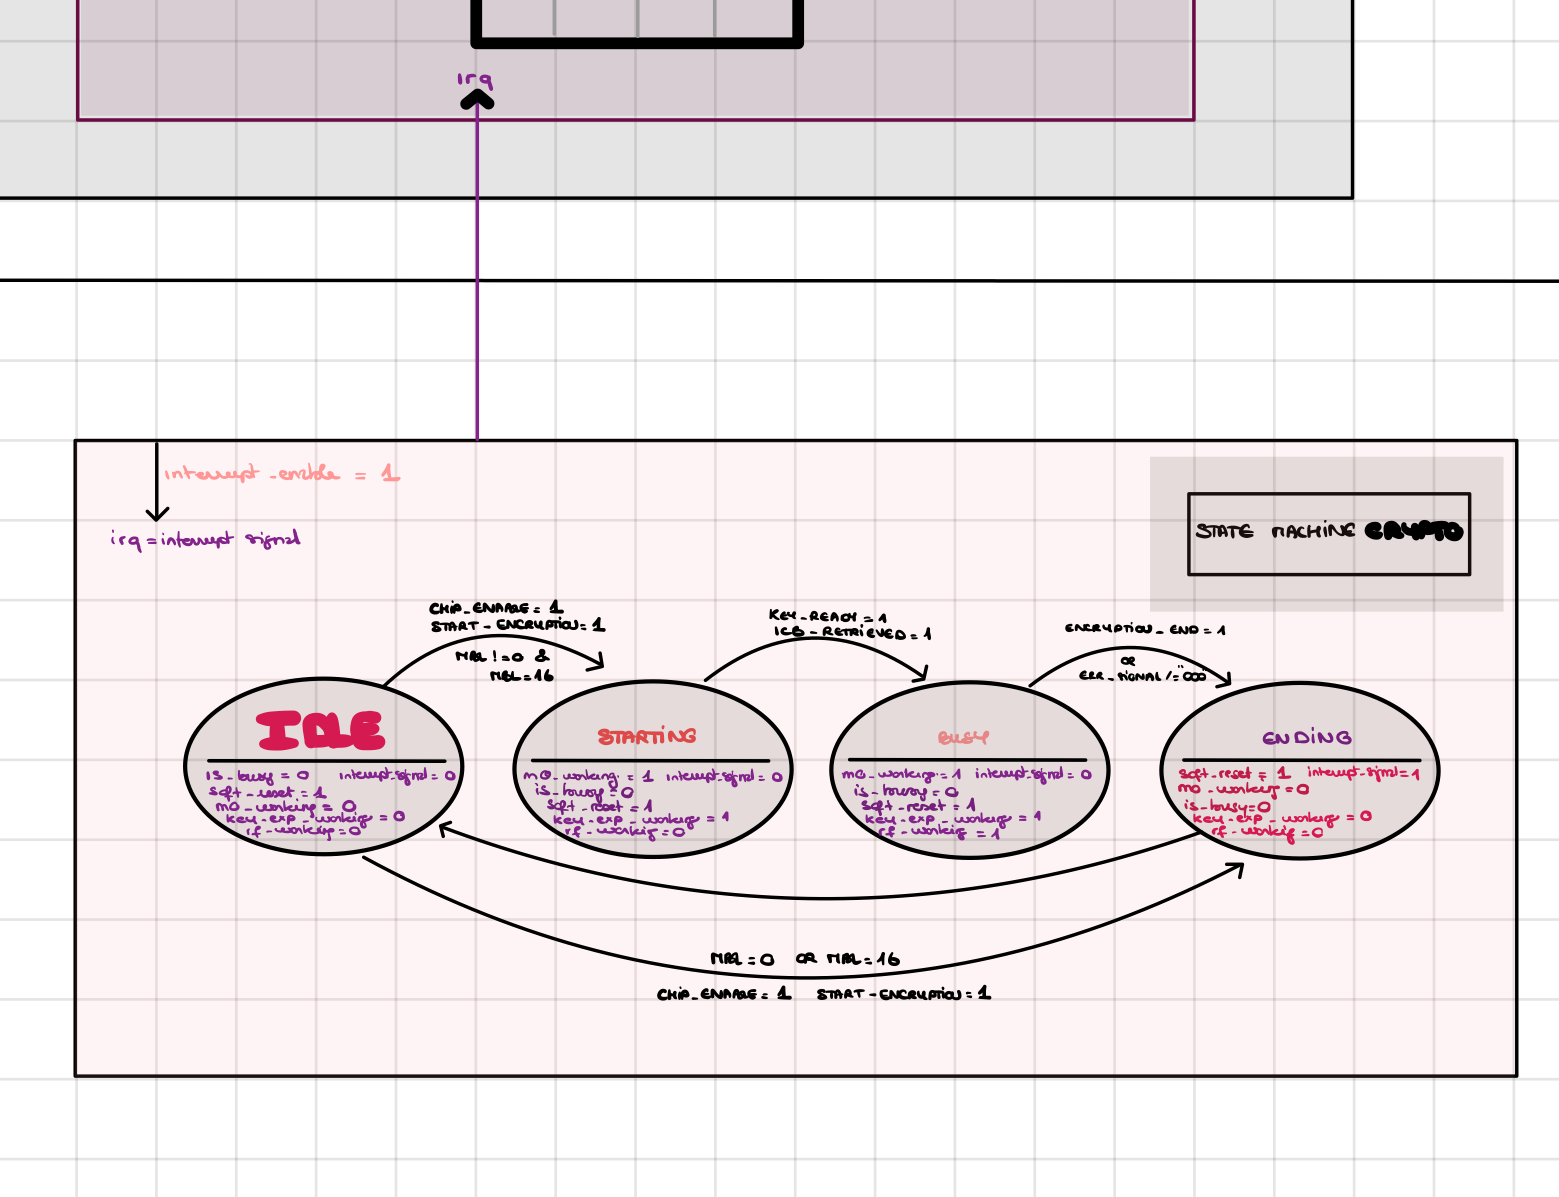 irq
interrupt_enable = 1
irq = interrupt signal
STATE MACHINE CRYPTO
CHIP_ENABLE = 1
START_ENCRYPTION = 1
MBL != 0 &
MBL = 16
KEY_READY = 1
ICB_RETRIEVED = 1
ENCRYPTION_END = 1
OR
ERR_SIGNAL /= "000"
IDLE
is_busy = 0 interrupt_signal = 0
soft_reset = 1
mo_working = 0
key_exp_working = 0
rf_working = 0
STARTING
mo_working = 1 interrupt_signal = 0
is_busy = 0
soft_reset = 1
key_exp_working = 1
rf_working = 0
BUSY
mo_working = 1 interrupt_signal = 0
is_busy = 0
soft_reset = 1
key_exp_working = 1
rf_working = 1
ENDING
soft_reset = 1 interrupt_signal = 1
mo_working = 0
is_busy = 0
key_exp_working = 0
rf_working = 0
MBL = 0 OR MBL = 16
CHIP_ENABLE = 1 START_ENCRYPTION = 1